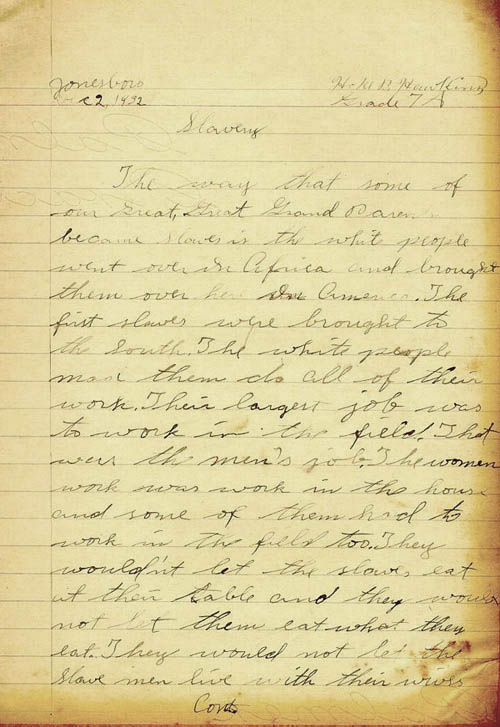 Jonesboro
Dec 2, 1932 Grade 7A
Slavery
The way that some of
our Great, Great Grand Parents
became slaves is the white people
went over in Africa and brought
them over here in America. The
first slaves were brought to
the South. The white people
mad them do all of their
work. Their largest job was
to work in the field. That
were the men's job. The women
work was work in the house
and some of them had to
work in the field too. They
wouldn't let the slaves eat
at their table and they would
not let them eat what they
eat. They would not let the
slave men live with their wives
Cont.